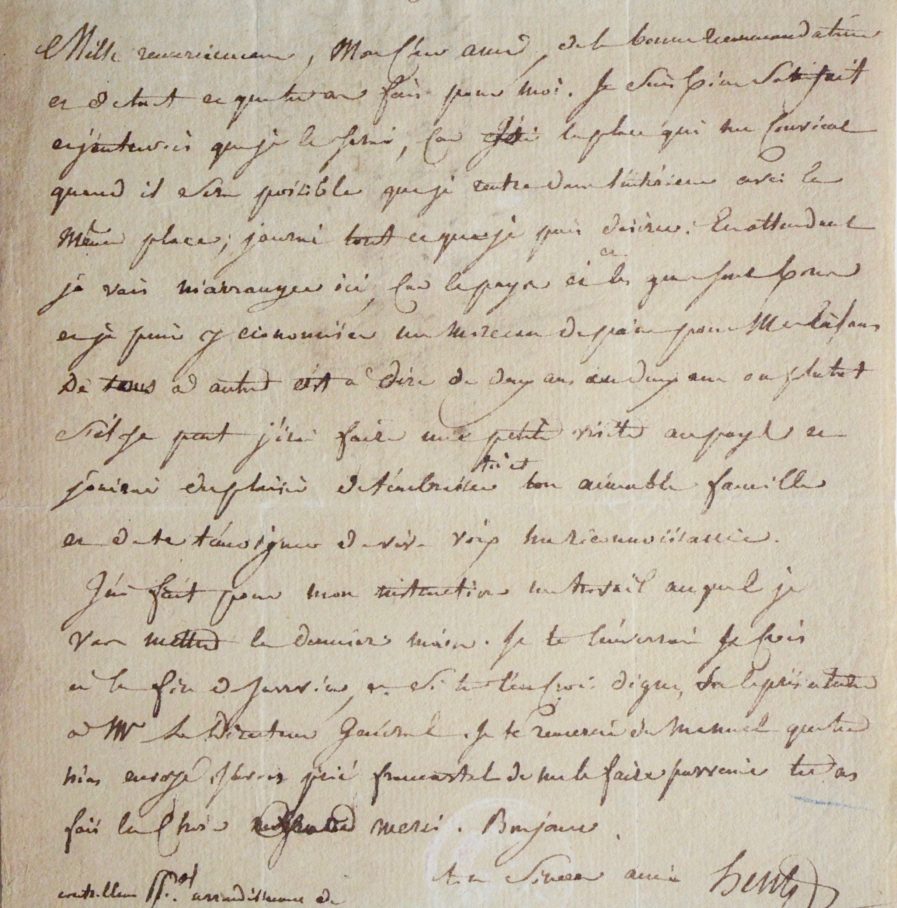 Mille remerciemens, Mon cher ami, de la bonne recommandation
et de tout ce que tu as fais pour moi. Je suis bien satisfait
et que je le serai, car j'ai la place qui me convient
quand il sera possible que je rentre dans l'intérieur avec la
Même place; j'aurai tout ce que je puis désirer. En attendant
je vais m'arranger ici, car le pays et les gens sont bons
et je puis y économiser un morceau de pain pour Mes Enfans
De tems à autre c'est à dire de deux ans en deux ans ou plutot
s'il se peut j'irai faire une petite visite au pays et
j'aurai du plaisir d'embrasser toi et ton aimable famille
et de te témoigner de vive voix ma reconnoissance.
J'ai fait pour mon instruction un travail auquel je
vais mettre la derniere main. Je te l'enverrai Je crois
à la fin de Janvier, et si tu l'en crois digne, tu le présenteras
à Mr Le Directeur Général. Je te remercie du Manuel que tu
m'as envoyé. J'avois prié de me le faire parvenir tu as
fais la chose merci. Bonjour.
ton sincere ami
controlleur Ppal arrondissement de